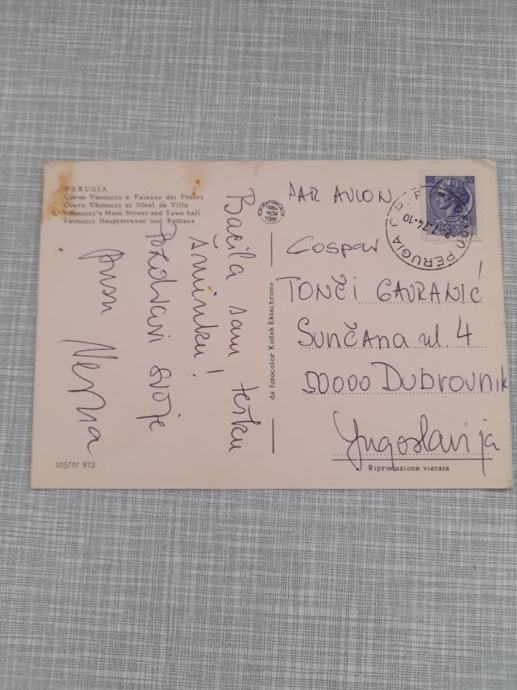 PERUGIA
Corso Vannucci e Palazzo dei Priori
Cours Vannucci et Hôtel de Ville
Vannucci's Main Street and Town hall
Vannucci Hauptstrasse und Rathaus
Bacila sam tešku
šminku!
Pozdravi svoje
Nesna
105/IV 973
da fotocolor Kodak Ektachrome
PAR AVION
55
PERUGIA
74-10
Gospar
TONČI GAVRANIĆ
SUNČANA ul. 4
50000 Dubrovnik
Jugoslavija
Riproduzione vietata